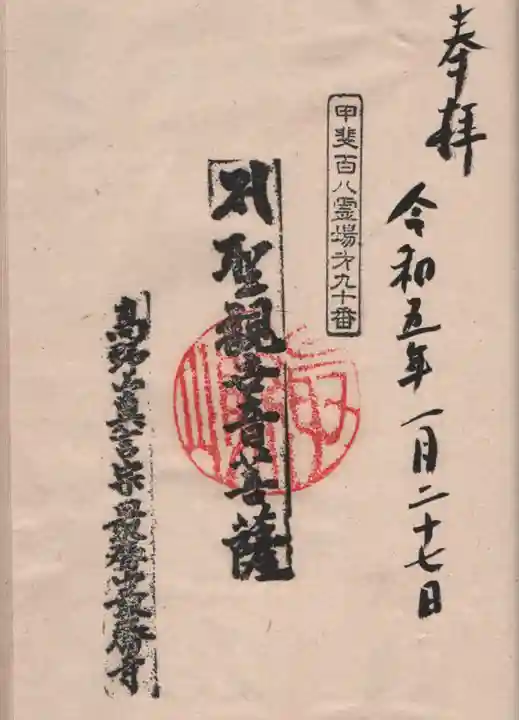 奉拝
令和五年一月二十七日
甲斐百八霊場第九十番
聖観世音菩薩
高野山真言宗最勝山最勝寺